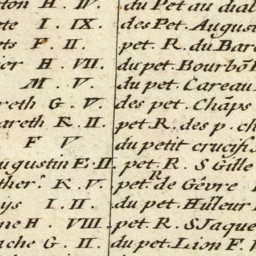 ton H. IV. du Pet au diab
te I. IX. des Pet. August
ts F. II. pet. R. du Bar
ier H. VII. du pet. Bourbõ
M. V. du pet. Careau
reth G. V. des pet. Chãps
areth K. II. pet. R. des p. ch
F V du petit crucifi
augustin E. II. pet. R. S Gille
ther. K. V. pet. R de Gévre
ys I. II. du pet. Hũleur
ne H. VIII. pet. R. S Jaque
ache G. II. du pet. Lion F.